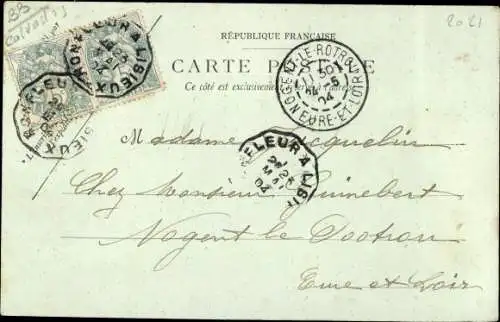 BB
Calvados
20.21
RÉPUBLIQUE FRANÇAISE
CARTE POSTALE
Ce côté est exclusivement réservé à l'adresse
NOGENT-LE-ROTROU
EURE-ET-LOIR
04
HONFLEUR A LISIEUX
FLEUR A LISI
2E
04
Madame Jacquelin
Chez Monsieur Guinebert
Nogent le Rotrou
Eure et Loir